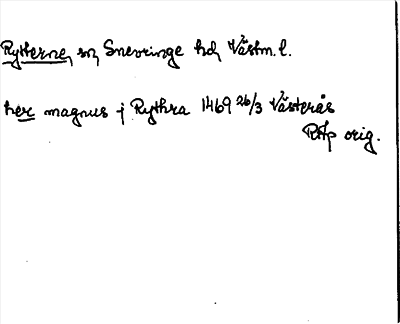 Rytterne, sn Snevringe hd, Västm. l.
her magnus j Rythra 1469 26/3 Västerås
RAp orig.